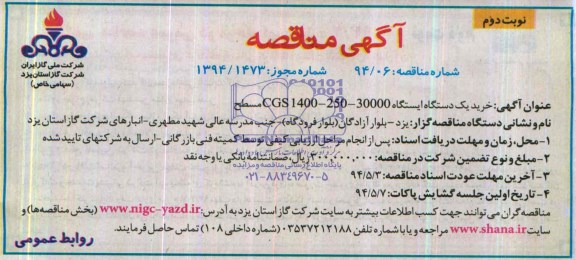 نوبت دوم
آگهی مناقصه
شرکت ملی گاز ایران
شرکت گاز استان یزد
(سهامی خاص)
شماره مناقصه: ۹۴/۰۶
شماره مجوز: ۱۳۹۴/۱۴۷۳
عنوان آگهی: خرید یک دستگاه ایستگاه CGS1400-250-30000 مسطح
نام و نشانی دستگاه مناقصه گزار: یزد - بلوار آزادگان (بلوار فرودگاه) - جنب مدرسه عالی شهید مطهری - انبارهای شرکت گاز استان یزد
۱- محل، زمان و مهلت دریافت اسناد: پس از انجام مراحل ارزیابی کیفی توسط کمیته فنی بازرگانی - ارسال به شرکتهای تایید شده
۲- مبلغ و نوع تضمین شرکت در مناقصه: ۳۰۰،۰۰۰،۰۰۰ ریال، ضمانتنامه بانکی یا وجه نقد
۳- آخرین مهلت عودت اسناد مناقصه: ۹۴/۵/۳
۴- تاریخ اولین جلسه گشایش پاکات: ۹۴/۵/۷
پایگاه اطلاع رسانی مناقصه و مزایده
۰۲۱-۸۸۳۴۹۶۷۰-۵
مناقصه گران می توانند جهت کسب اطلاعات بیشتر به سایت شرکت گاز استان یزد به آدرس: www.nigc-yazd.ir (بخش مناقصه ها) و
سایت www.shana.ir مراجعه و یا با شماره تلفن ۰۳۵۳۷۲۱۲۱۸۸ (شماره داخلی ۱۰۸) تماس حاصل فرمایند.
روابط عمومی